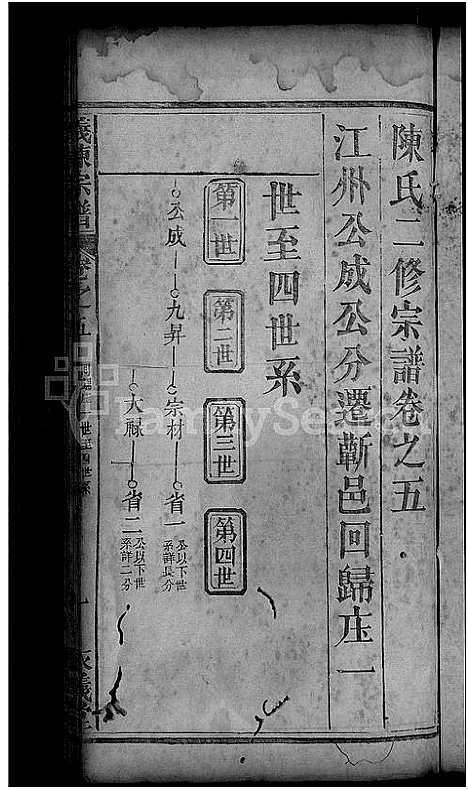 陳氏二修宗譜卷之五
江州公成公分遷蘄邑回歸庄一
世至四世系
第一世
第二世
第三世
第四世
公成 九昇 宗材 省一 公以下世系詳長分
大祿 省二 公以下世系詳二分
義陳宗譜 卷之五
一
義門堂
FamilySearch